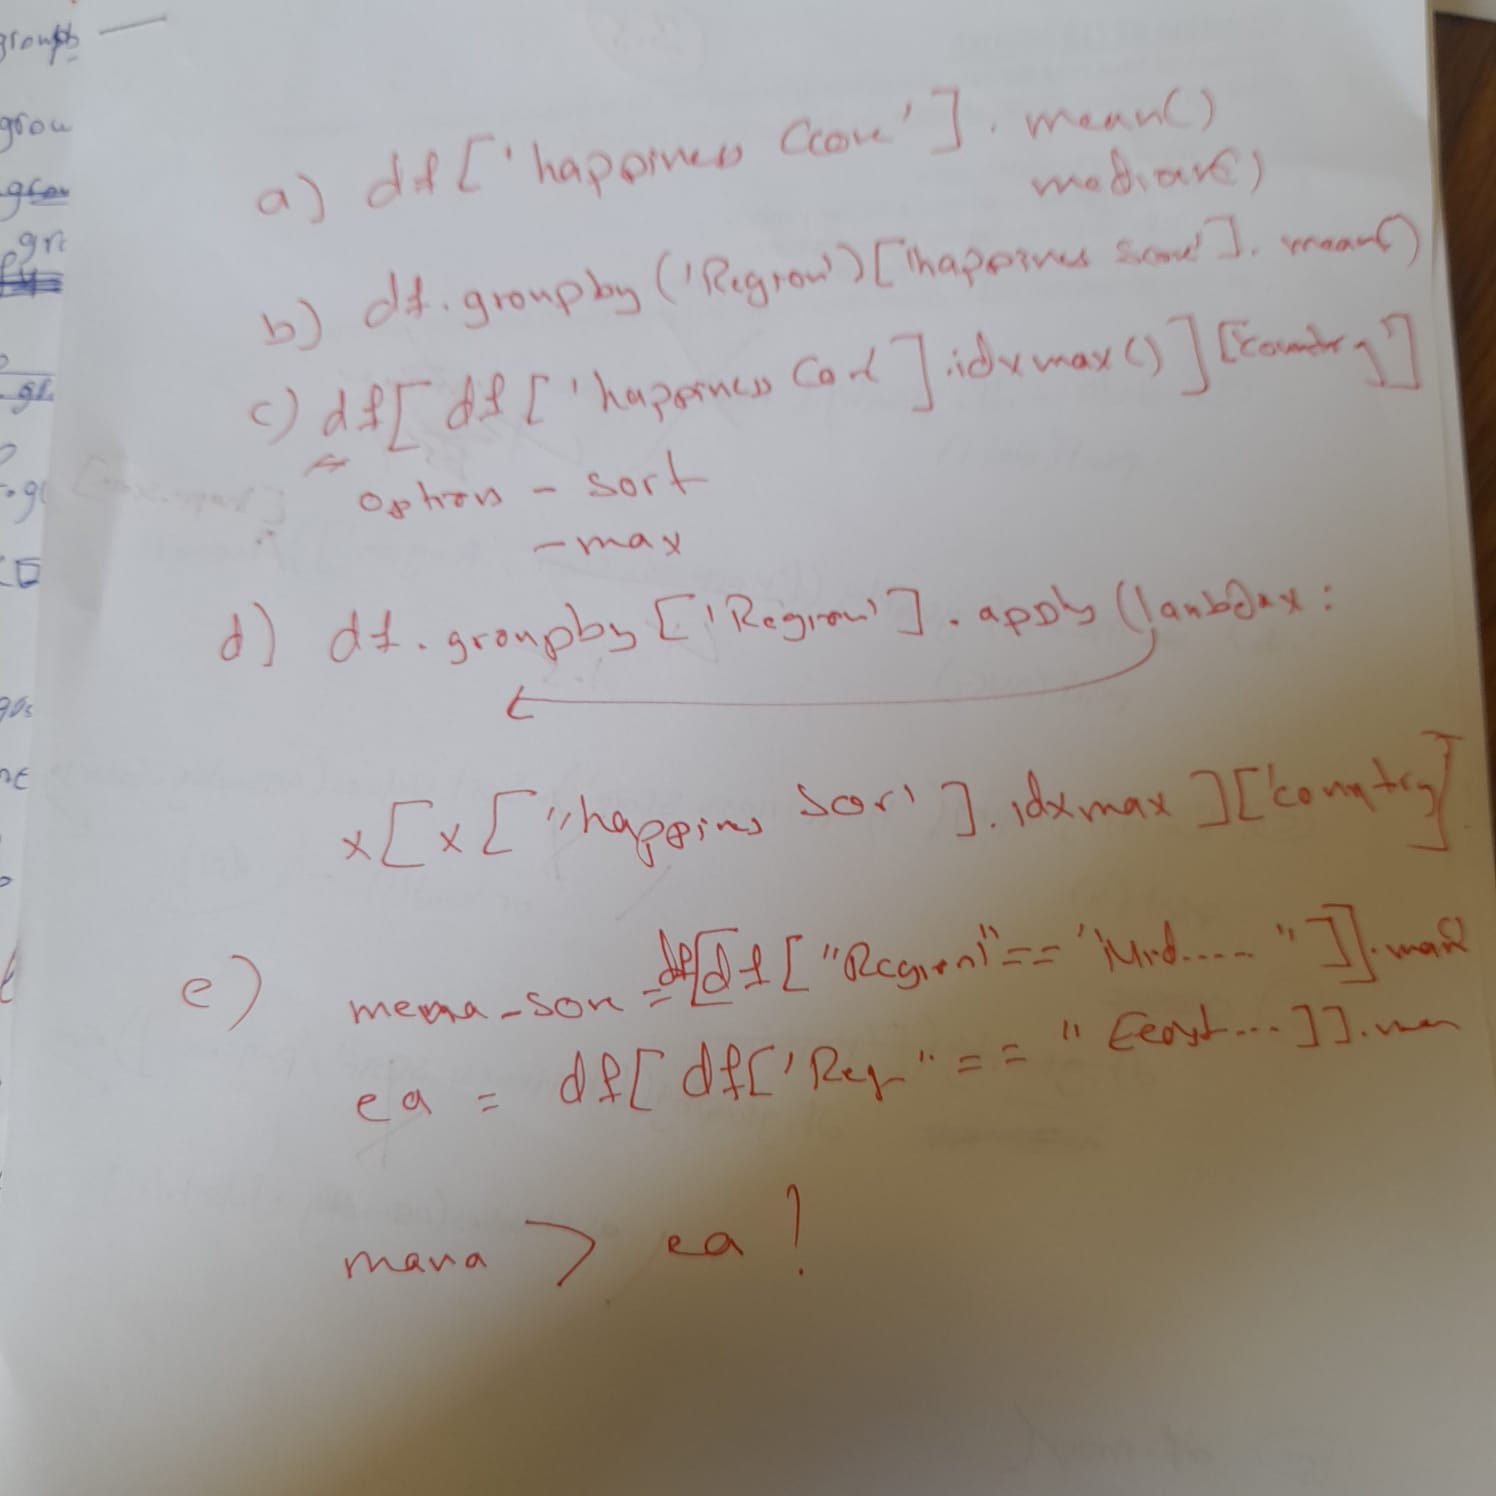 groupb
grou
a) df['happiness Ccore'].mean()
median()
b) df.groupby('Region')['happines score'].mean()
c) df[df['happiness Cor'].idxmax()]['country']
option - sort
- max
d) df.groupby['Region'].apply(lambdax:
x[x["happins Sor'].idxmax]['country]
e) mena_sor = df[df["Region"=='Mid....."]].mean
ea = df[df['Reg" == "Eeast...]].men
mana > ea !